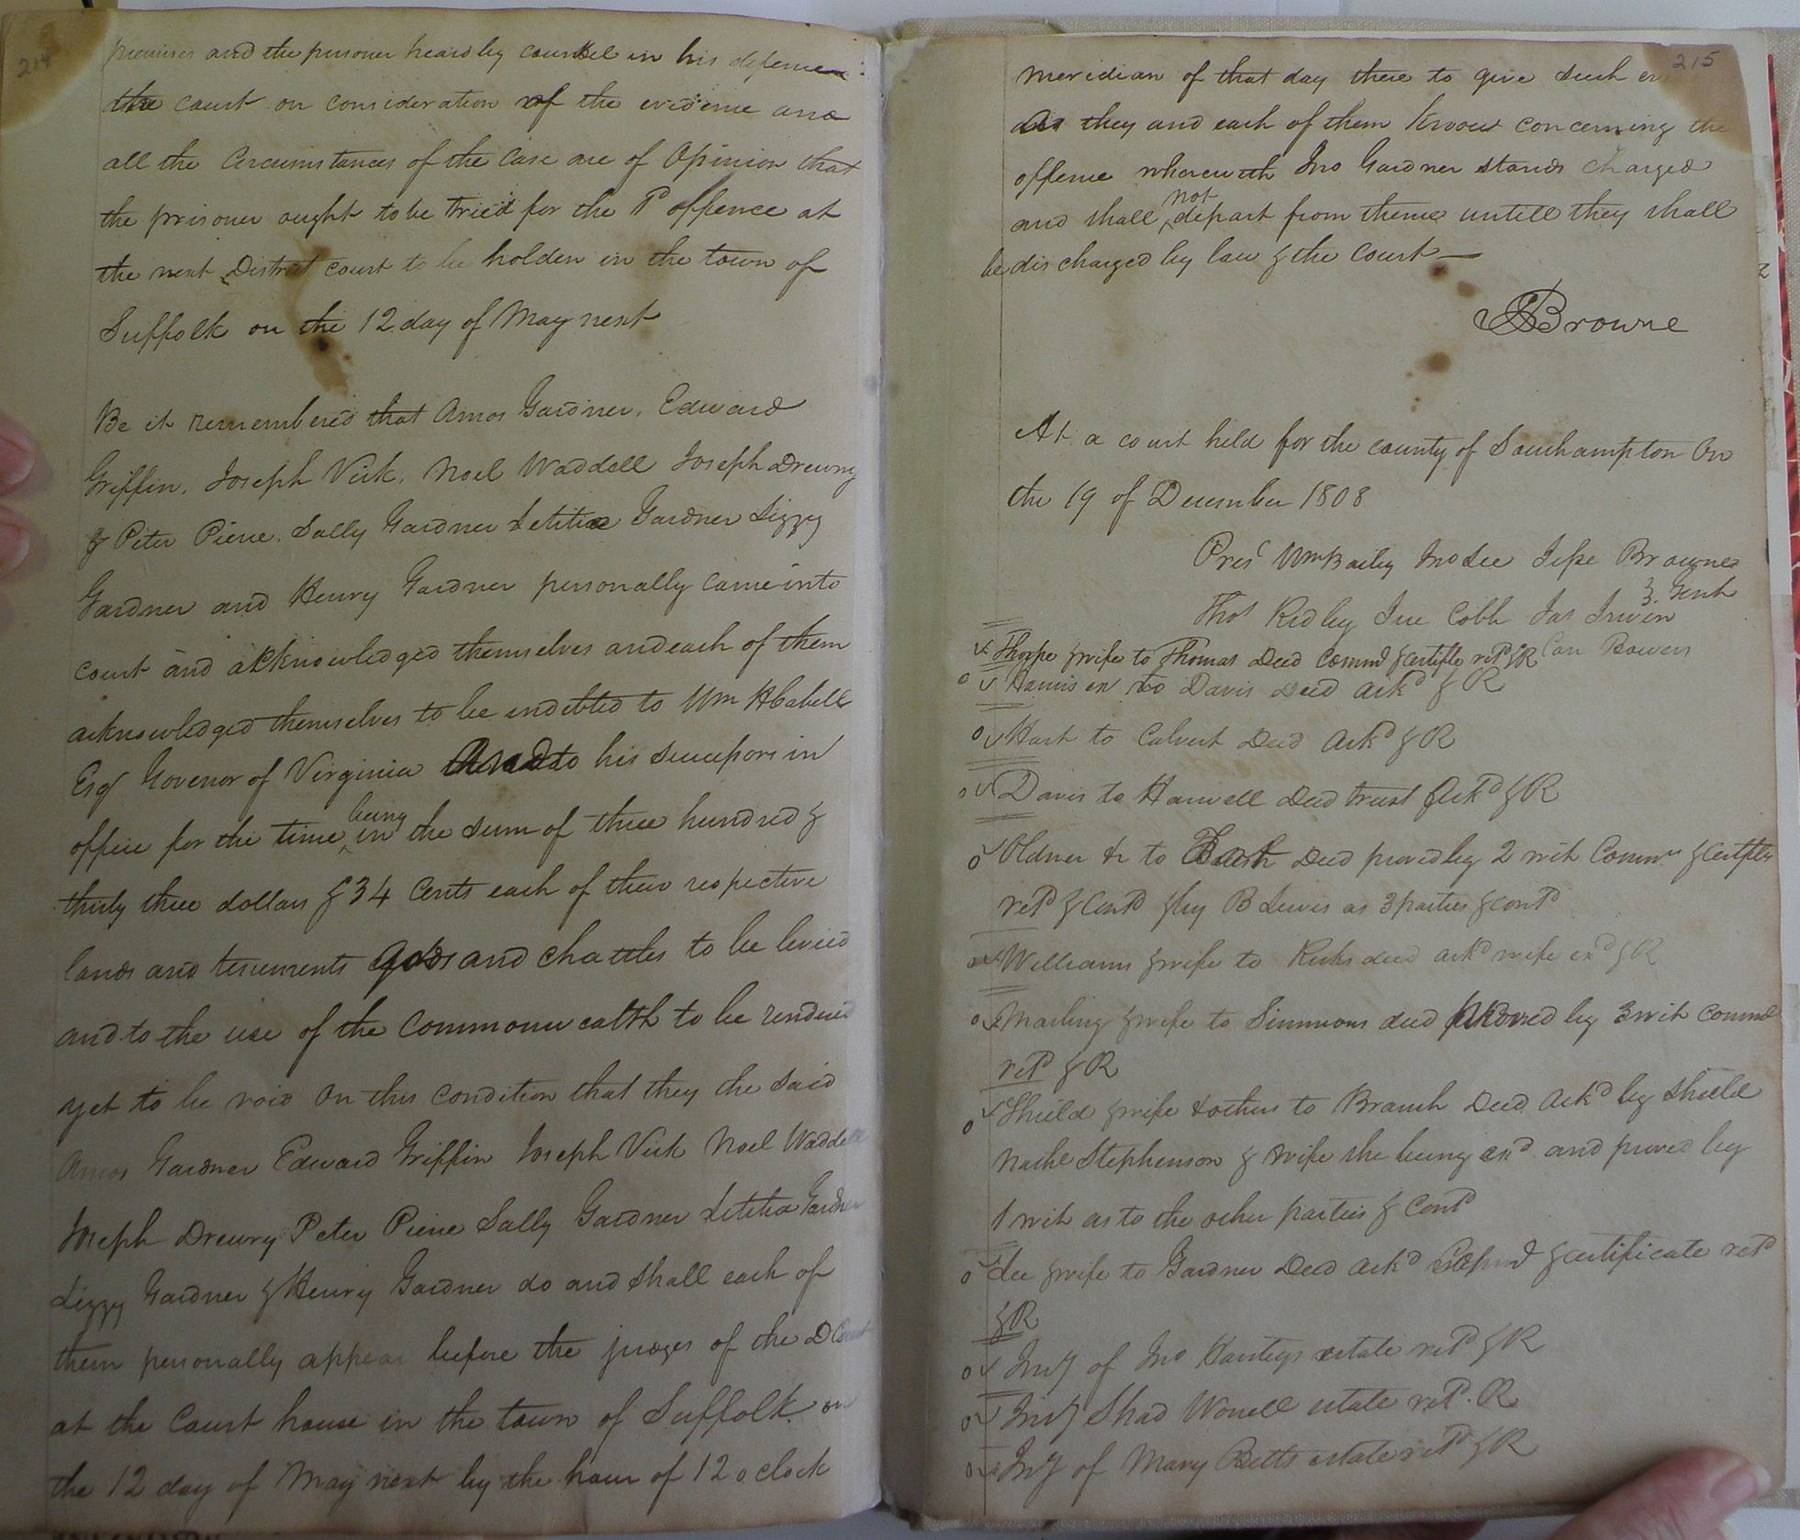 214
premises and the prisoner heard by counsel in his defence:
the court on consideration of the evidence and
all the Circumstances of the Case are of Opinion that
the prisoner ought to be tried for the sd offence at
the next District court to be holden in the town of
Suffolk on the 12 day of May next
Be it remembered that Amos Gardner, Edward
Griffin, Joseph Vick, Noel Waddell Joseph Drewry
& Peter Pierce, Sally Gardner Letitia Gardner Lizzy
Gardner and Henry Gardner personally came into
court and acknowledged themselves and each of them
acknowledged themselves to be indebted to Wm H Cabell
Esqr Govenor of Virginia And to his successors in
office for the time being in the sum of three hundred &
thirty three dollars & 34 Cents each of their respective
lands and tenements goods and chattles to be levied
and to the use of the Commonwealth to be rendered
yet to be void On this Condition that they the said
Amos Gardner Edward Griffin Joseph Vick Noel Waddell
Joseph Drewry Peter Pierce Sally Gardner Letitia Gardner
Lizzy Gardner & Henry Gardner do and shall each of
them personally appear before the judges of the D Court
at the Court house in the town of Suffolk on
the 12 day of May next by the hour of 12 oclock
215
meridian of that day there to give such
As they and each of them know concerning the
offence wherewith Jno Gardner stands charged
and shall not depart from thence untill they shall
be discharged by law & the Court
Browne
At a court held for the county of Southampton On
the 19 of December 1808
Pres Wm Bailey Jno Lee Jesse Browne
Thos Ridley Cobb Jas Irwin } Gent
Carr Bowers
Thorpe & wife to Thomas Deed Commd & certife retd & R
Harris ex to Davis Deed Ackd & R
Hart to Calvert Deed Ackd & R
Davis to Harwell Deed trust Ackd & R
Oldner &c to Deed proved by 2 wit Commn & certfte
retd & Contd & by B Lewis as 3 parties & contd
Williams & wife to Ricks deed ackd wife exd & R
& wife to Simmons deed proved by 3 wit Commd
retd & R
Shield & wife & others to Branch Deed Ackd by Shield
Nathl Stephenson & wife she being exd and proved by
1 wit as to the other parties & Contd
Lee & wife to Gardner Deed Ackd Commd & certificate retd
& R
Invy of Jno estate retd & R
Invy Shad Worrell estate retd. R
Invy of Mary Betts estate retd & R